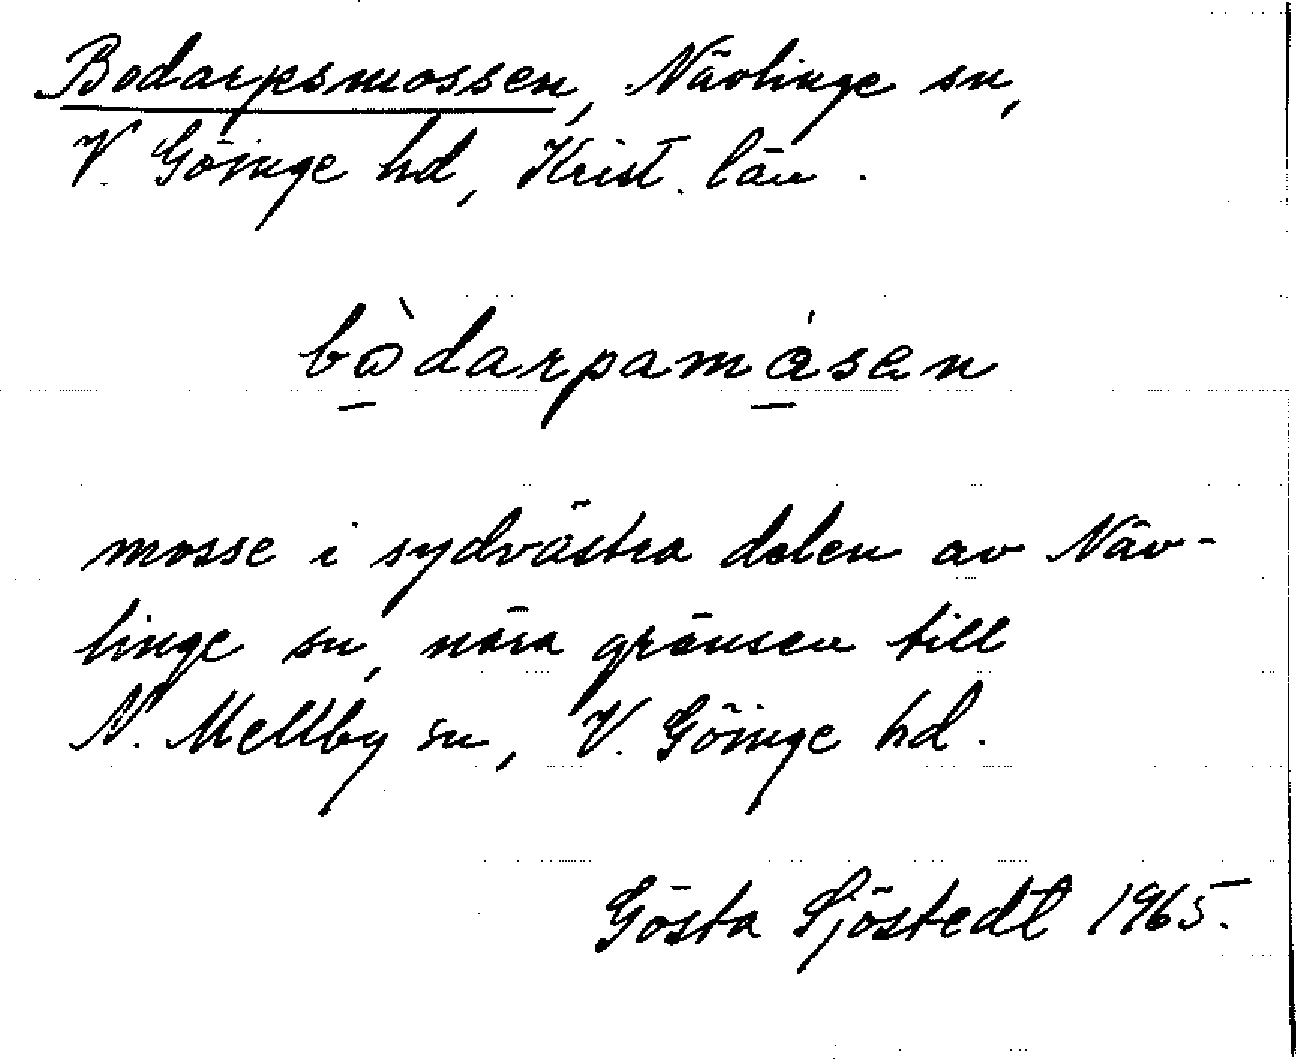 Bodarpsmossen, Nävlinge sn,
V. Göinge hd, Krist. län.
bòdarpamåsen
mosse i sydvästra delen av Näv-
linge sn, nära gränsen till
N. Mellby sn, V. Göinge hd.
Gösta Sjöstedt 1965.